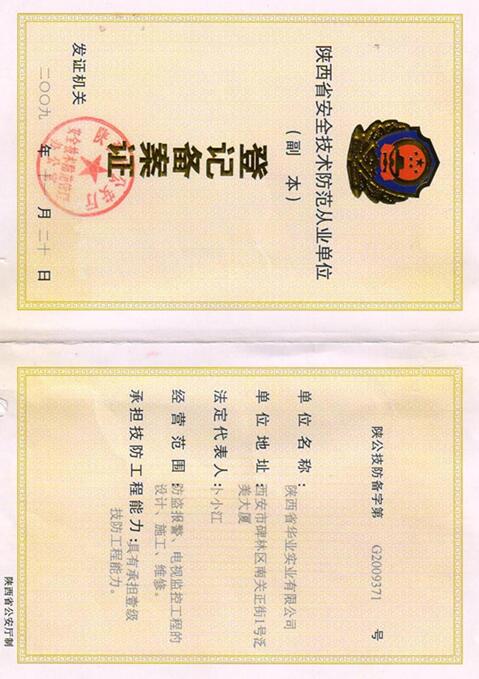 陕西省安全技术防范从业单位
（副 本）
登记备案证
发证机关
二〇〇九 年 十一 月 二十 日
陕公技防备字第 G2009371 号
单位名称：陕西省华业实业有限公司
单位地址：西安市碑林区南关正街1号泛
美大厦
法定代表人：卜小江
经营范围：防盗报警、电视监控工程的
设计、施工、维修。
承担技防工程能力：具有承担壹级
技防工程能力。
陕西省公安厅制